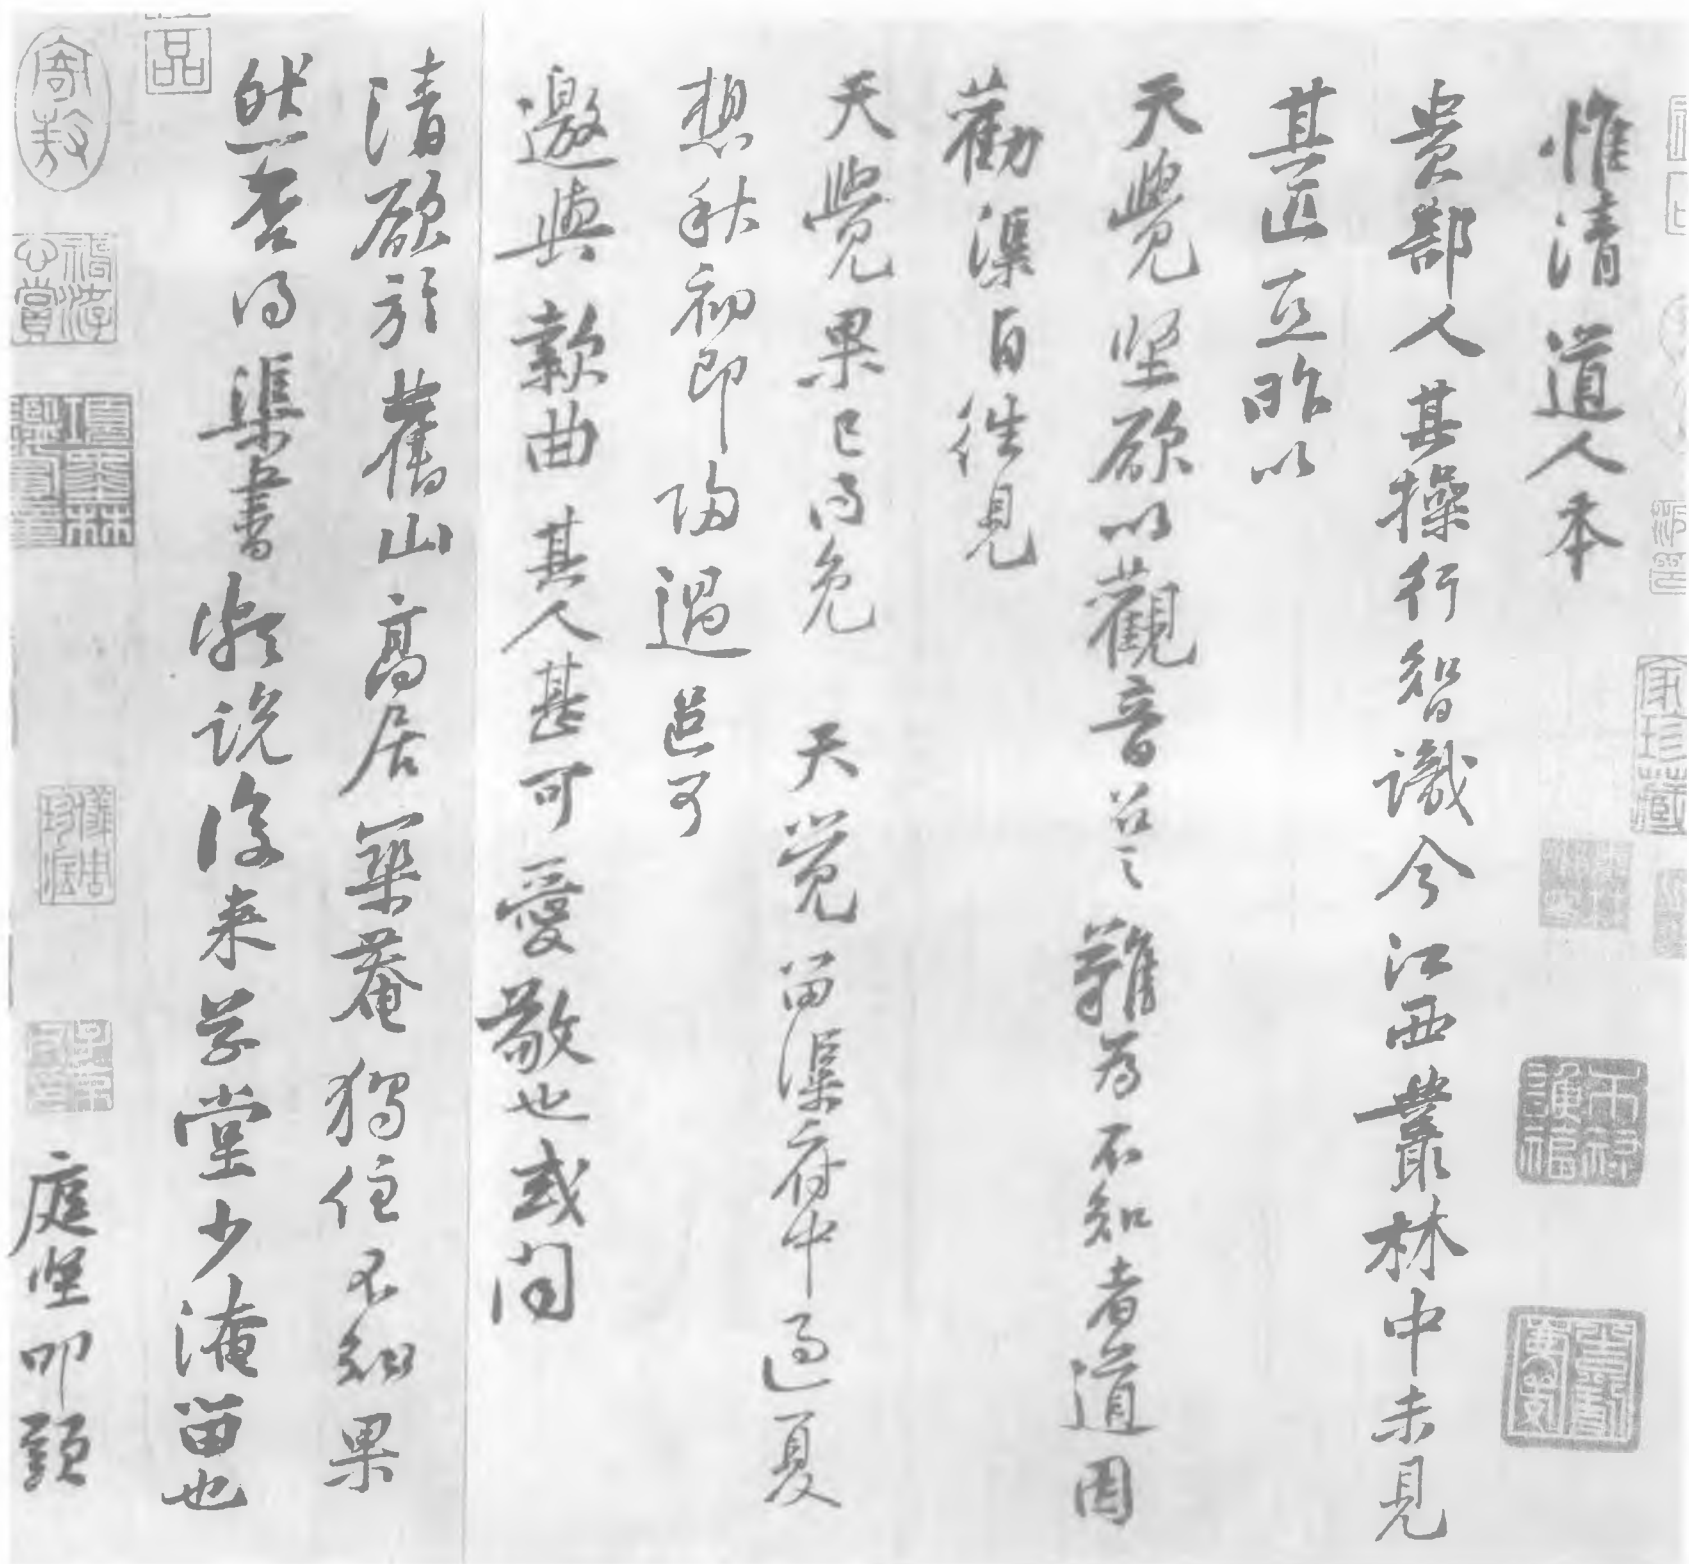 惟清道人本
貴部人其操行智識今江西叢林中未見
其匹亞昨以
天覺堅欲以觀音召之難為不知者道因
勸渠自往見
天覺果已得免天覺留渠府中過夏
想秋初即歸過邑可
邀與款曲其人甚可愛敬也或聞
清欲於舊山高居築菴獨住不知果
然否得渠書頗說後來草堂少淹留也
庭堅叩頭